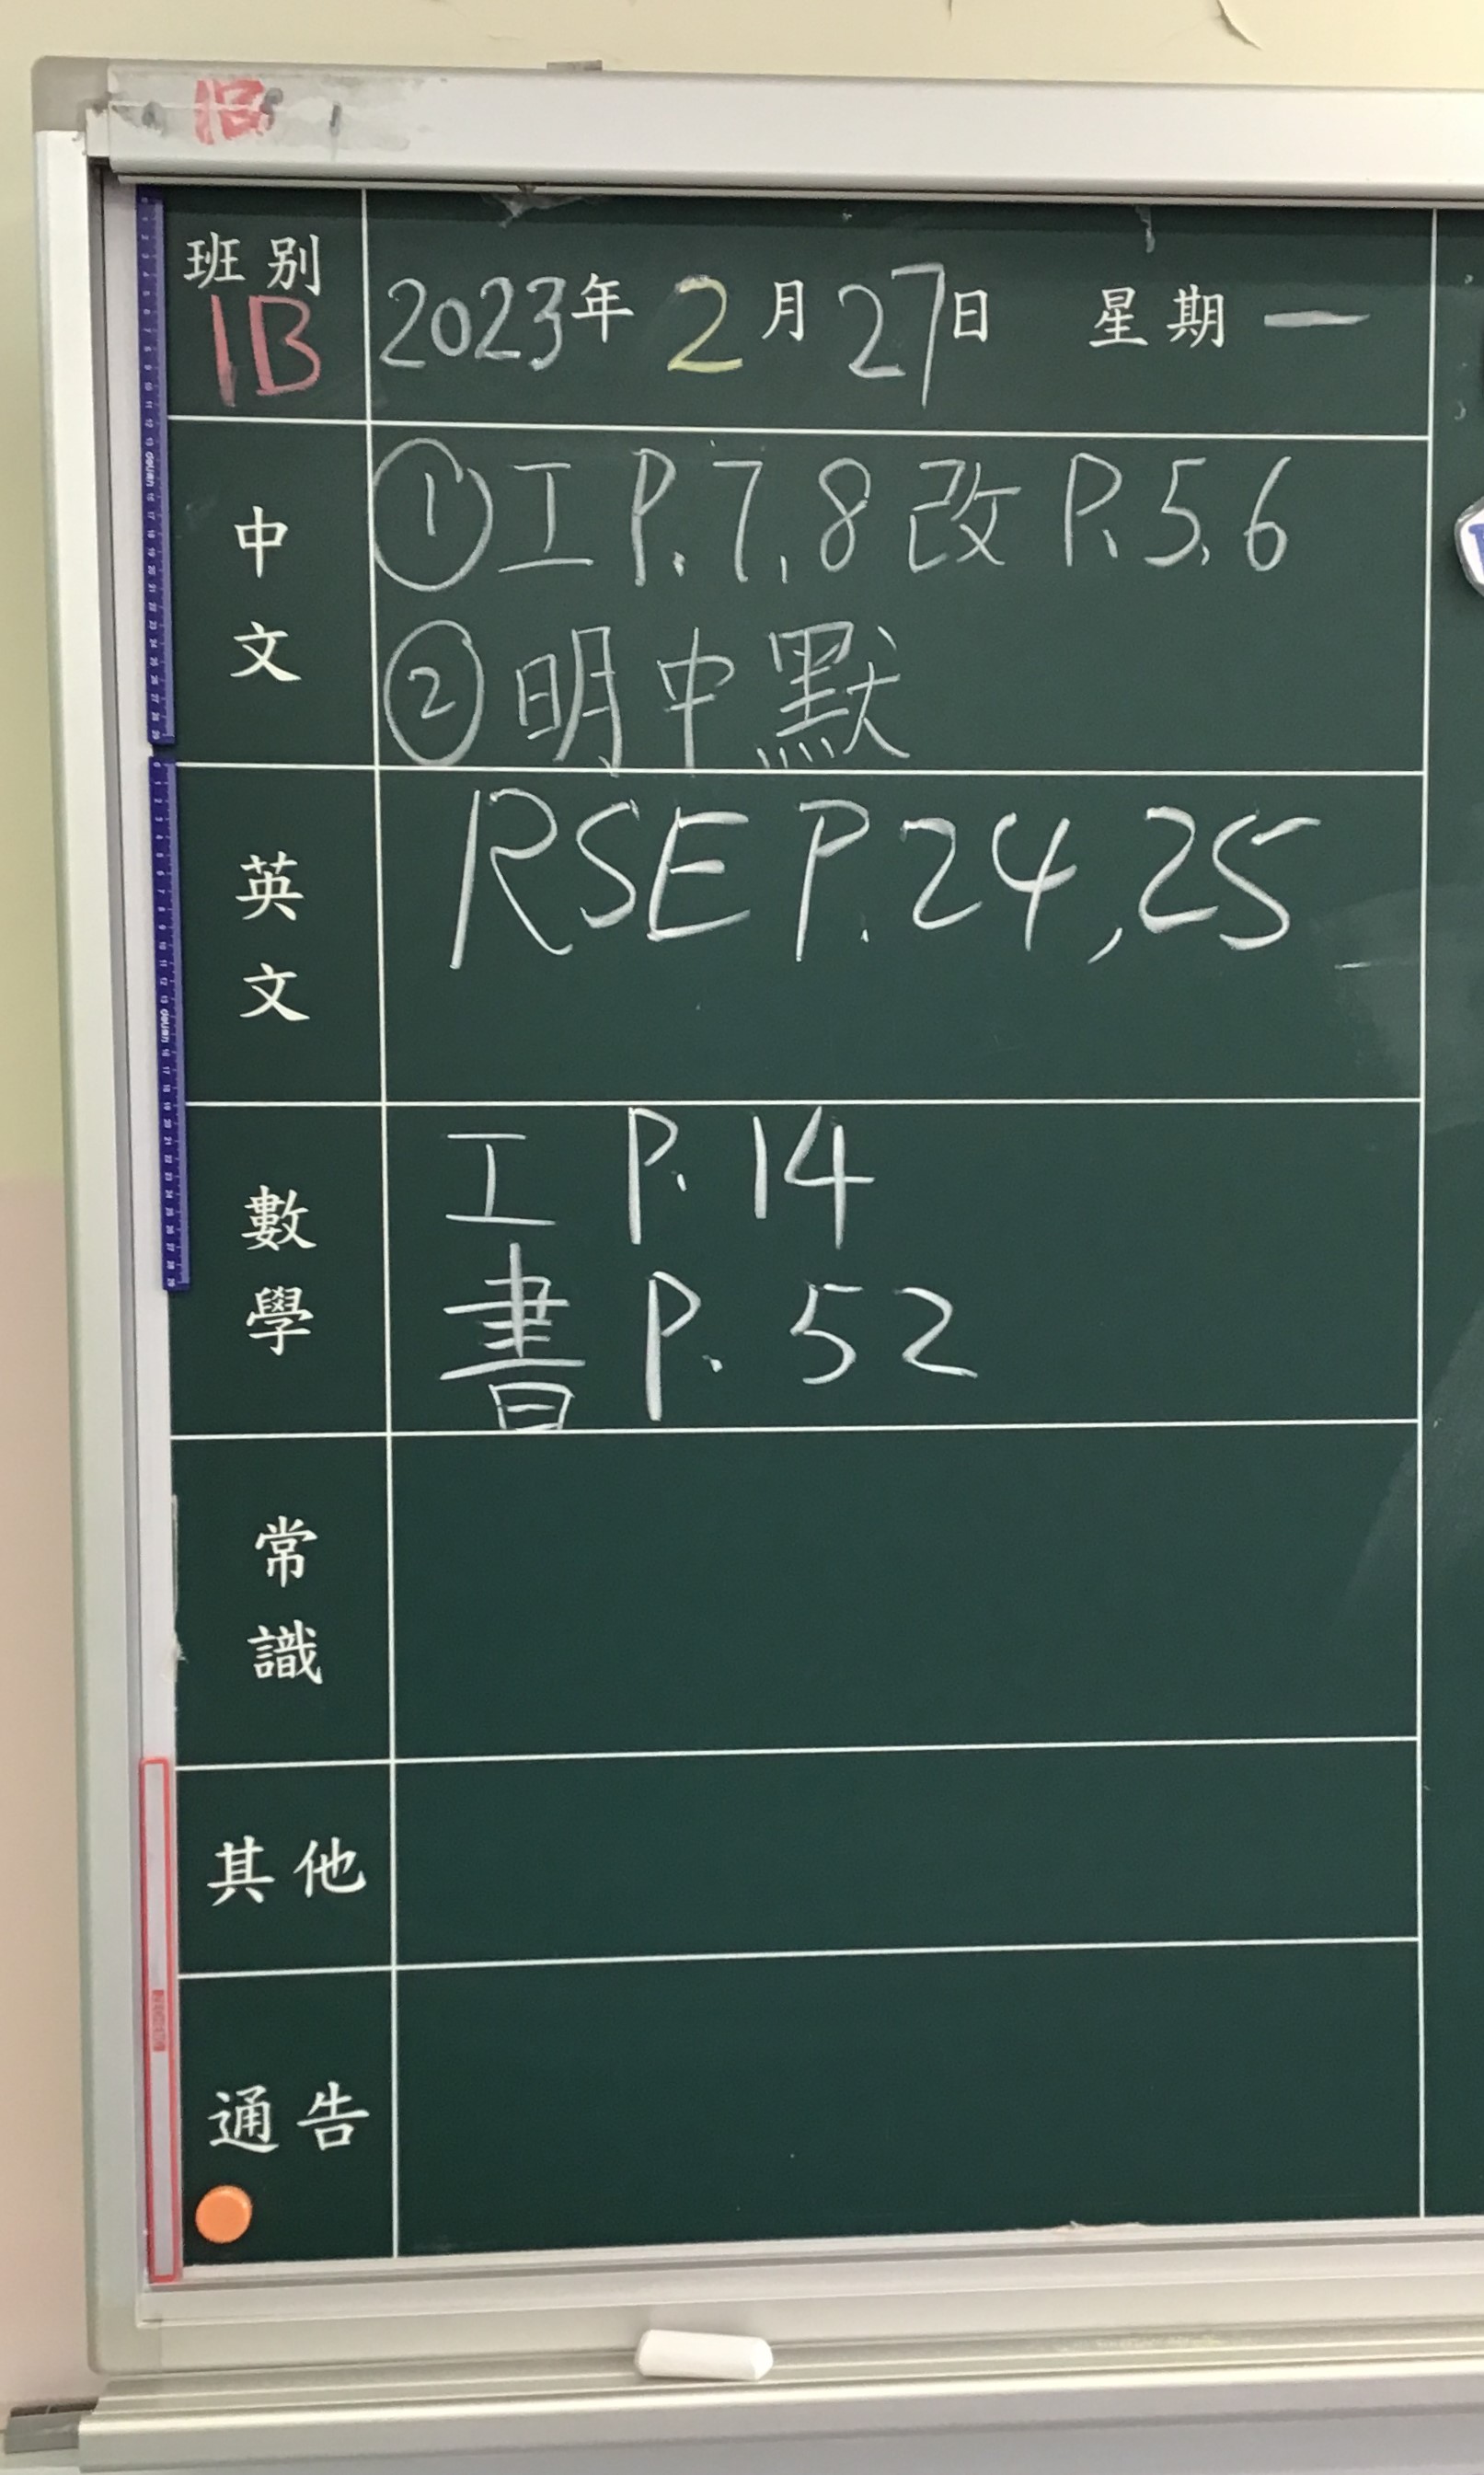 班別
1B
2023年 2月27日 星期一
中文
①工 P.7,8 改 P.5,6
②明中默
英文
RSE P.24,25
數學
工 P.14
書 P.52
常識
其他
通告